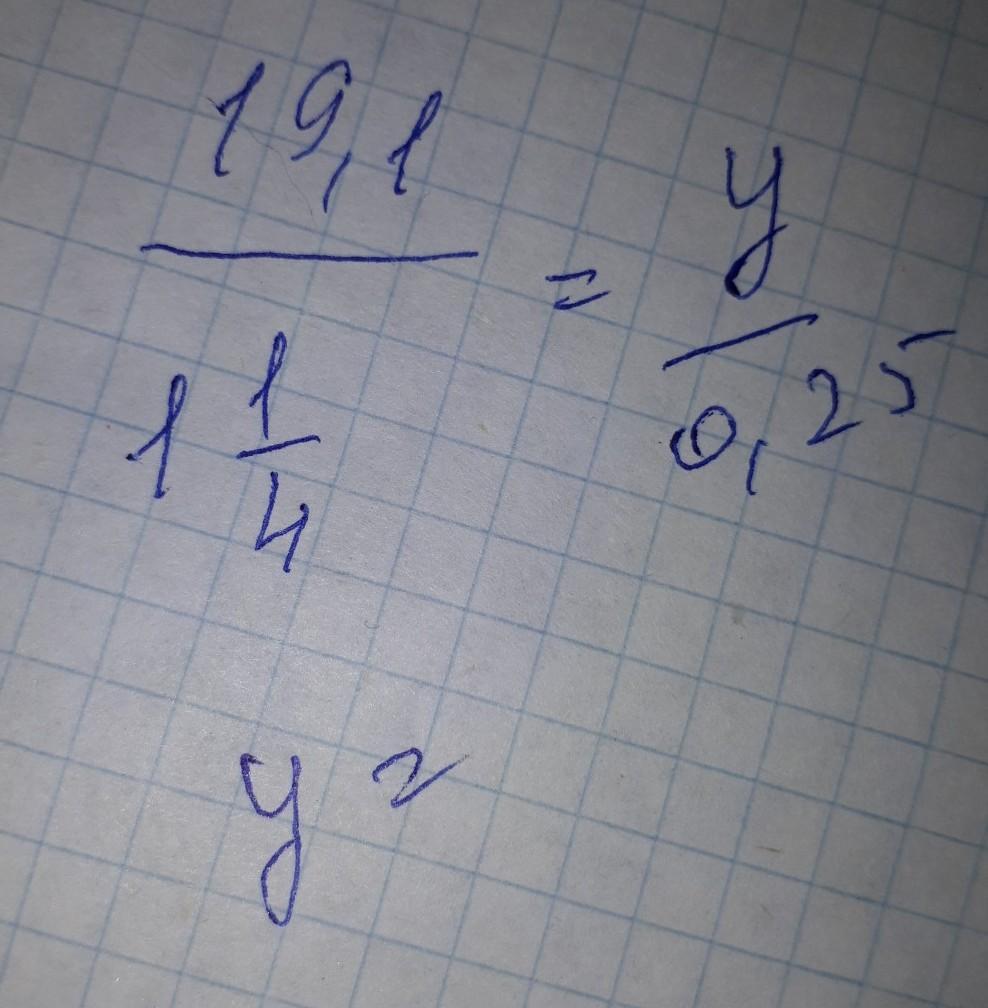 19,1 / 1 1/4 = y / 0,25
y =